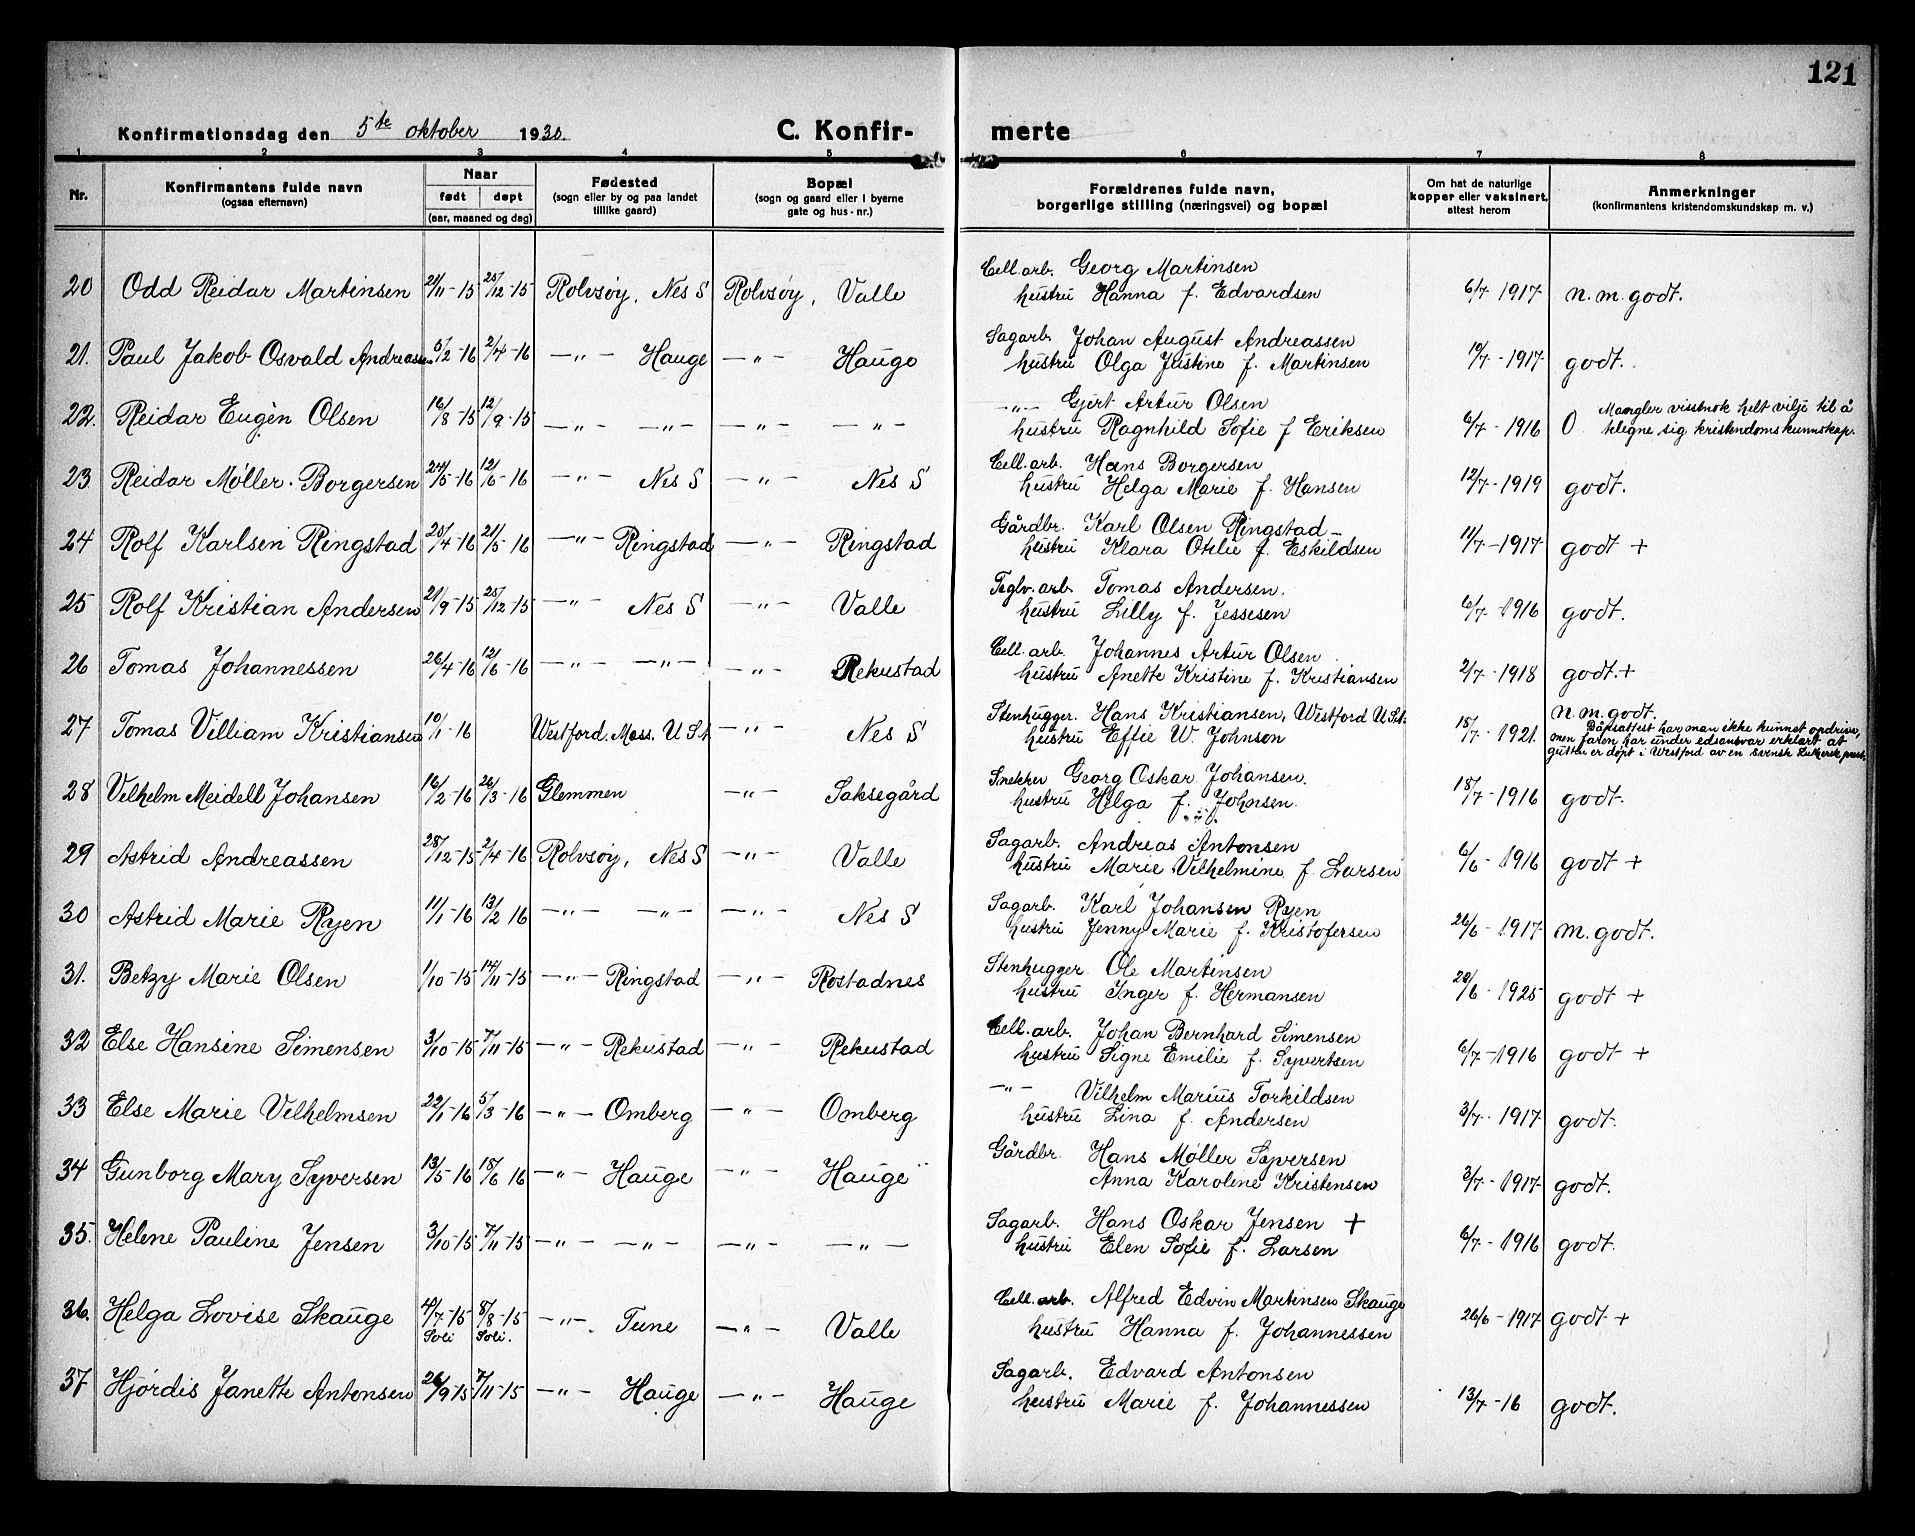 121
Konfirmationsdag den 5te oktober 1930.
C. Konfir- merte
1 2 3 4 5 6 7 8
Nr.
Konfirmantens fulde navn
(ogsaa efternavn)
Naar
født døpt
(aar, maaned og dag)
Fødested
(sogn eller by og paa landet
tillike gaard)
Bopæl
(sogn og gaard eller i byerne
gate og hus-nr.)
Forældrenes fulde navn,
borgerlige stilling (næringsvei) og bopæl
Om hat de naturlige
kopper eller vaksinert,
attest herom
Anmerkninger
(konfirmantens kristendomskundskap m. v.)
Cell.arb. Georg Martinsen
20 Odd Reidar Martinsen 21/11-15 25/12-15 Rolvsøy, Nes S Rolvsøy, Valle hustru Hanna f. Edvardsen 6/7 1917 n.m. godt.
Sagarb. Johan August Andreassen
21. Paul Jakob Osvald Andreassen 5/2-16 2/4-16 —"— Hauge —"— Hauge hustru Olga Justine f. Martinsen 10/7-1917 godt.
—"— Gjert Artur Olsen
22. Reidar Eugèn Olsen 16/8-15 12/9-15 —"— —"— —"— —"— hustru Ragnhild Sofie f Eriksen 6/7-1916 0 Mangler visstnok helt vilje til å
tilegne sig kristendomskunnskap.
Cell.arb. Hans Borgersen
23 Reidar Møller-Borgersen 24/5-16 12/6-16 —"— Nes S —"— Nes S hustru Helga Marie f. Hansen 12/7-1919 godt.
Gårdbr. Karl Olsen Ringstad—
24 Rolf Karlsen Ringstad 25/4-16 21/5-16 —"— Ringstad —"— Ringstad hustru Klara Otilie f. Eskildsen 11/7-1917 godt +
Teglv.arb. Tomas Andersen.
25 Rolf Kristian Andersen 21/9-15 25/12-15 —"— Nes S —"— Valle hustru Lilly f. Jessesen 6/7-1916 godt.
Cell.arb. Johannes Artur Olsen
26 Tomas Johannessen 26/4-16 12/6-16 —"— —"— —"— Rekustad hustru Anette Kristine f. Kristiansen 2/7-1918 godt. +
Stenhugger. Hans Kristiansen, Westford U St. n.m. godt.
27 Tomas Villiam Kristiansen 10/1-16 Westford. Mass. U St. —"— Nes S hustru Effie W. Johnson 18/7-1921. Dåpsattest har man ikke kunnet opdrive,
men faren har under edsansvar erklært at
gutten er døpt i Westford av en svensk Lutkersk prest.
Snekker Georg Oskar Johansen.
28 Vilhelm Meidell Johansen 16/2-16 26/3-16 Glemmen —"— Saksegård hustru Helga f. Johnsen. 18/7-1916 godt.
Sagarb. Andreas Antonsen
29 Astrid Andreassen 28/12-15 2/4-16 Rolvsøy, Nes S —"— Valle hustru Marie Vilhelmine f. Larsen 6/6-1916 godt +
Sagarb. Karl Johansen Ryen
30 Astrid Marie Ryen 11/1-16 13/2 16 —"— —"— —"— Nes S hustru Jenny Marie f. Kristofersen 26/6-1917 m. godt.
Stenhugger Ole Martinsen
31. Betzy Marie Olsen 1/10-15 14/11-15 —"— Ringstad —"— Rostadnes hustru Inger f. Hermansen 20/6-1925 godt +
Cell.arb. Johan Bernhard Simensen
32 Else Hansine Simensen 3/10-15 7/11-15 —"— Rekustad —"— Rekustad hustru Signe Emilie f. Syvertsen 6/7-1916 godt +
—"— Vilhelm Marius Torkildsen
33 Else Marie Vilhelmsen 22/1-16 5/3-16 —"— Omberg —"— Omberg hustru Lina f. Andersen 3/7-1917 godt.
Gårdbr. Hans Møller Syversen
34 Gunborg Mary Syversen 13/5-16 18/6 16 —"— Hauge —"— Hauge Anna Karoline Kristensen 3/7-1917 godt.
Sagarb. Hans Oskar Jensen +
35. Helene Pauline Jensen 3/10-15 7/11-15 —"— —"— —"— —"— hustru Elen Sofie f. Larsen 6/7-1916 godt.
Cell.arb. Alfred Edvin Martinsen Skauge
36. Helga Lovise Skauge 4/7-15 8/8-15 —"— Tune —"— Valle hustru Hanna f. Johannessen 26/6-1917 godt +
Soli Soli.
Sagarb. Edvard Antonsen
37 Hjørdis Janette Antonsen 26/9 15 7/11-15 —"— Hauge —"— Hauge hustru Marie f. Johannessen 13/7-16 godt.